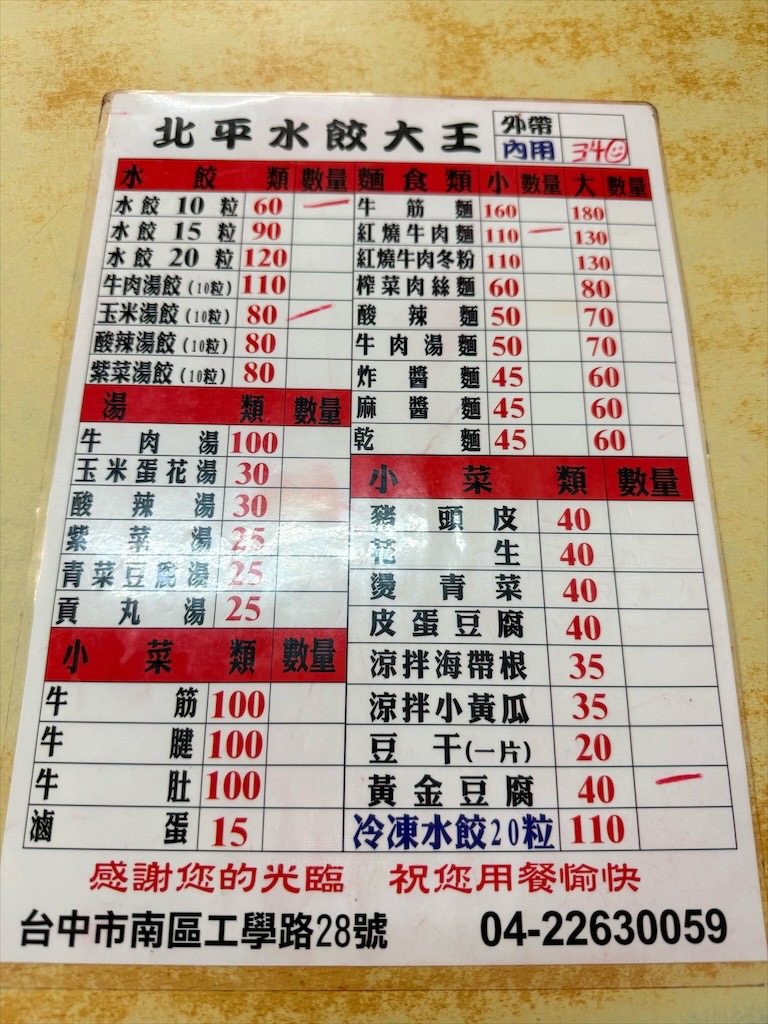 北平水餃大王
外帶
內用 340
水餃類 數量 麵食類 小 數量 大 數量
水餃10粒 60 牛筋麵 160 180
水餃15粒 90 紅燒牛肉麵 110 130
水餃20粒 120 紅燒牛肉冬粉 110 130
牛肉湯餃(10粒) 110 榨菜肉絲麵 60 80
玉米湯餃(10粒) 80 酸辣麵 50 70
酸辣湯餃(10粒) 80 牛肉湯麵 50 70
紫菜湯餃(10粒) 80 炸醬麵 45 60
麻醬麵 45 60
乾麵 45 60
湯類 數量
牛肉湯 100
玉米蛋花湯 30
酸辣湯 30
紫菜湯 25
青菜豆腐湯 25
貢丸湯 25
小菜類 數量
牛筋 100
牛腱 100
牛肚 100
滷蛋 15
小菜類 數量
豬頭皮 40
花生 40
燙青菜 40
皮蛋豆腐 40
涼拌海帶根 35
涼拌小黃瓜 35
豆干(一片) 20
黃金豆腐 40
冷凍水餃20粒 110
感謝您的光臨 祝您用餐愉快
台中市南區工學路28號 04-22630059